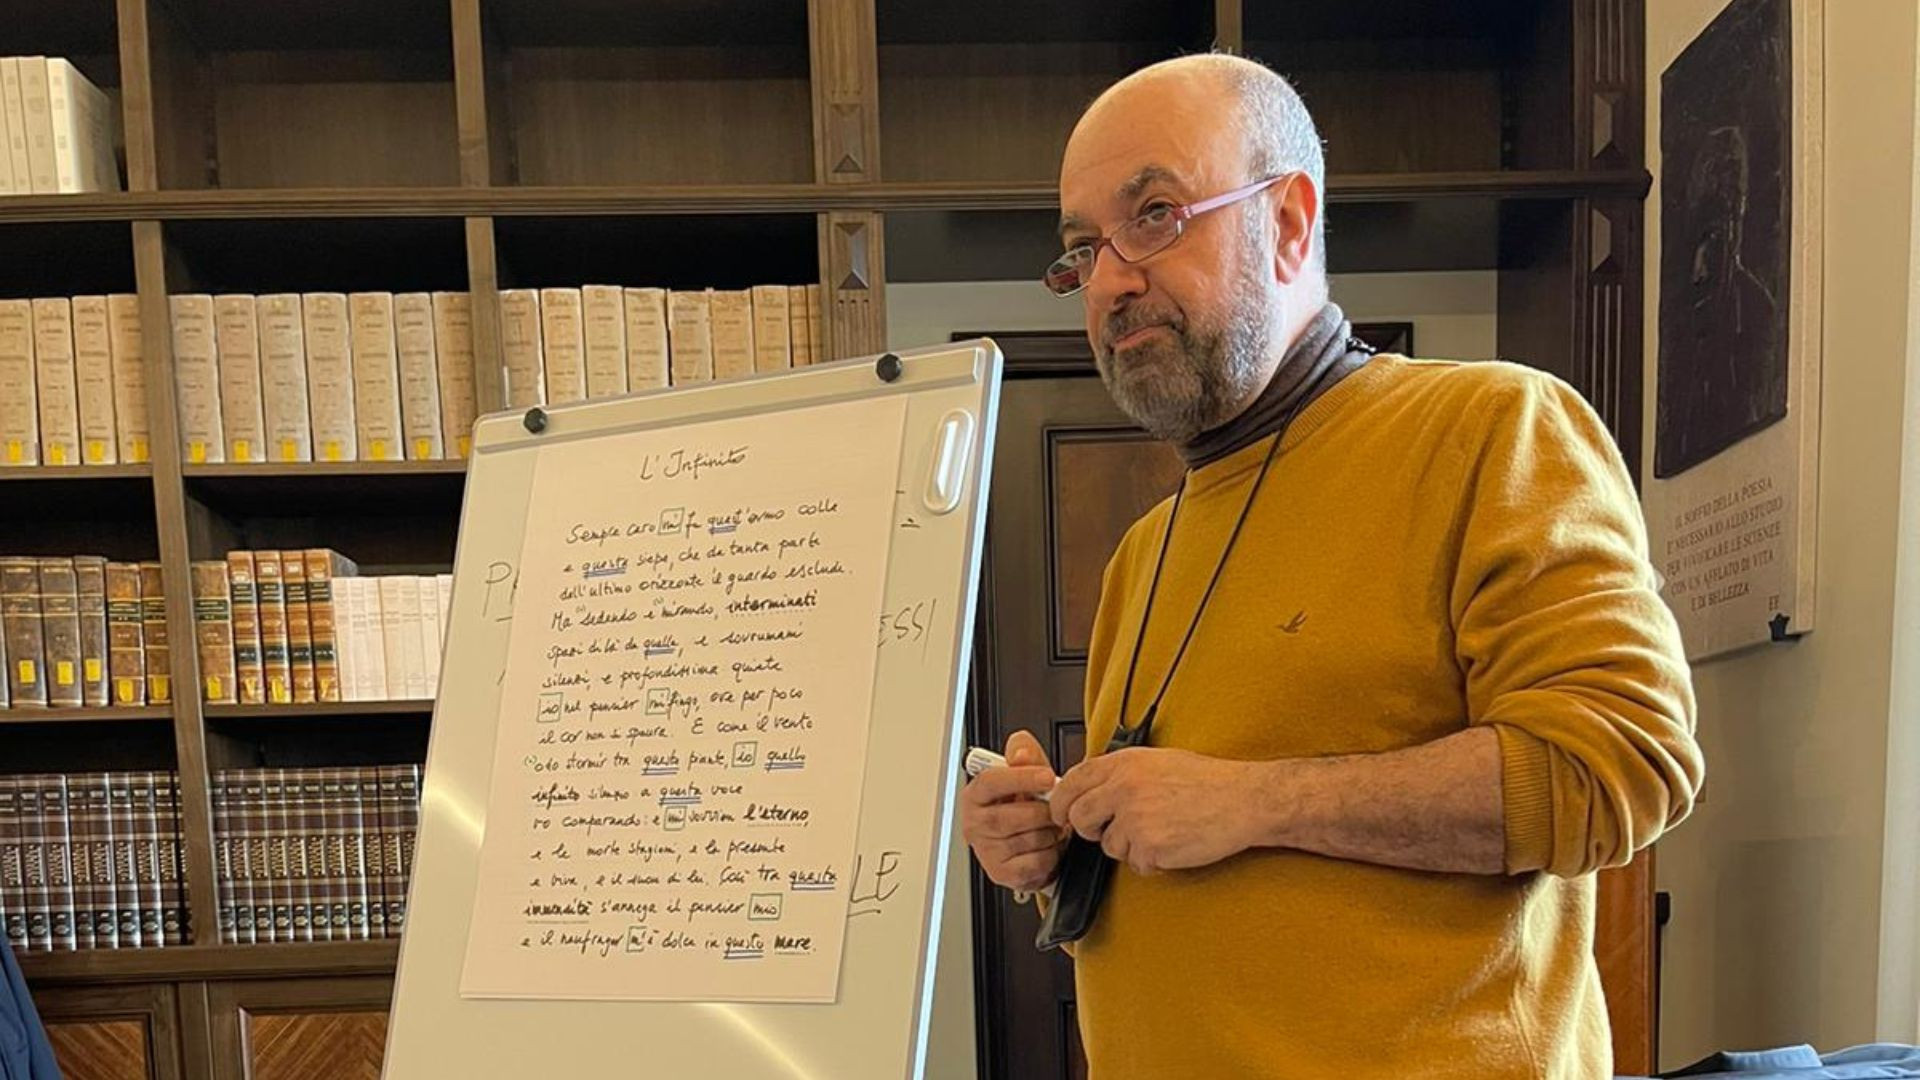 L'Infinito
Sempre caro mi fu quest'ermo colle
e questa siepe, che da tanta parte
dell'ultimo orizzonte il guardo esclude.
Ma sedendo e mirando, interminati
spazi di là da quella, e sovrumani
silenzi, e profondissima quiete
io nel pensier mi fingo, ove per poco
il cor non si spaura. E come il vento
odo stormir tra queste piante, io quello
infinito silenzio a questa voce
vo comparando: e mi sovvien l'eterno,
e le morte stagioni, e la presente
e viva, e il suon di lei. Così tra questa
immensità s'annega il pensier mio
e il naufragar m'è dolce in questo mare.
ESSI
LE
IL SOFFIO DELLA POESIA
E' NECESSARIO ALLO STUDIO
PER VIVIFICARE LE SCIENZE
CON UN AFFLATO DI VITA
E DI BELLEZZA
EF